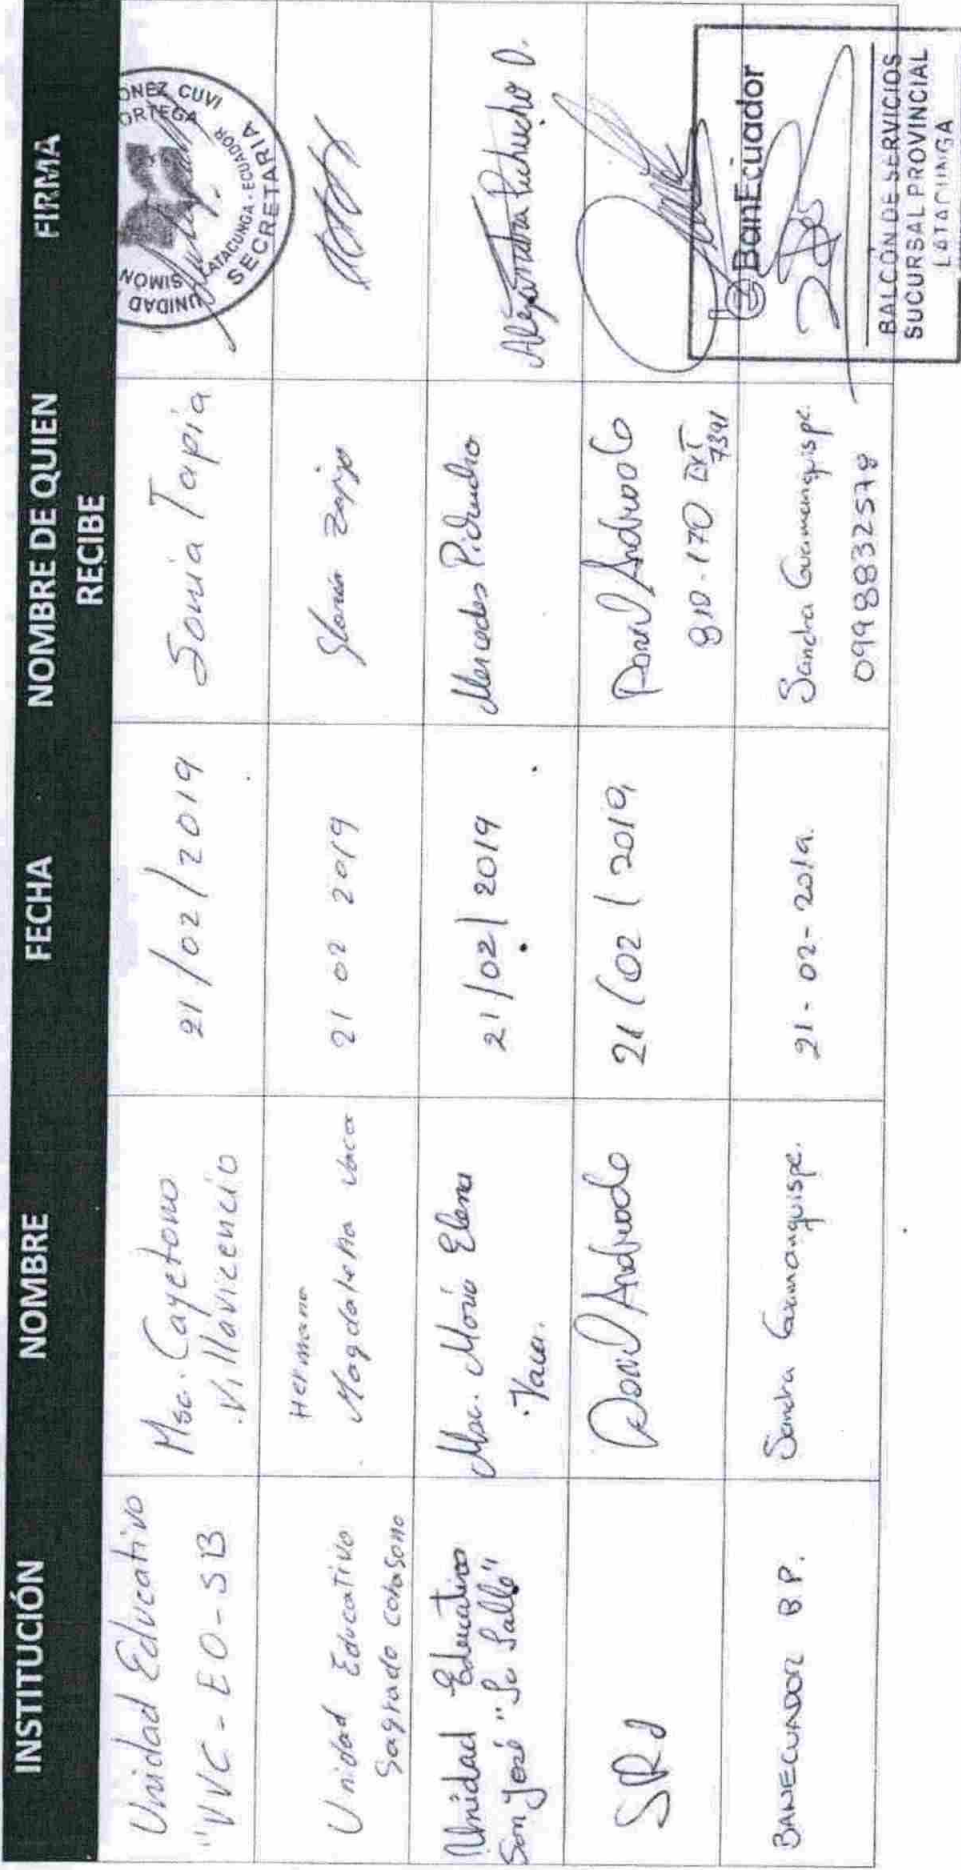 INSTITUCIÓN NOMBRE FECHA NOMBRE DE QUIEN RECIBE FIRMA
Unidad Educativo
"VVC - EO - SB
Msc. Cayetano
Villavicencio
21/02/2019
Sonia Tapia
ORTEGA
UNIDAD
SIMON
LATACUNGA - ECUADOR
SECRETARIA
Unidad Educativo
Sagrado Corasono
Hermano
Magdalena Vaca
21 02 2019
Gloria
Unidad Educativa
San José "La Salle"
Msc. María Elena
Vaca.
21/02/2019
Mercedes Pichucho
Alejandra Pichucho O.
SRI
David Andrade
21/02/2019
David Andrade G
810-170 EXT
7391
BANECUADOR B.P.
Sandra Guamanquispe.
21-02-2019.
Sandra Guamanquispe.
0998832578
BanEcuador
BALCÓN DE SERVICIOS
SUCURSAL PROVINCIAL
LATACUNGA